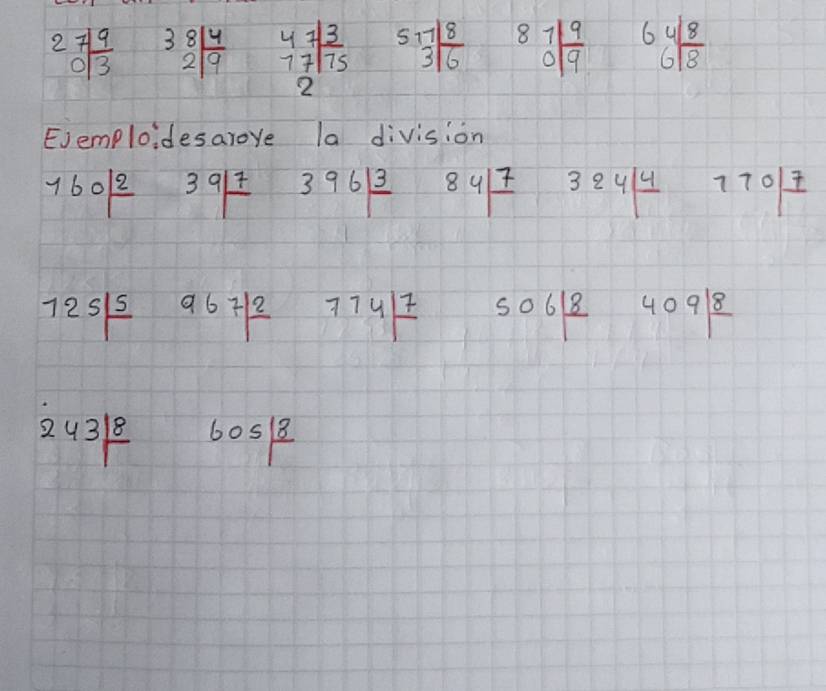 27|9 38|4 47|3 51|8 81|9 64|8
0|3 2|9 17|15 3|6 0|9 6|8
2
Ejemplo: desaroye la división
160|2 39|7 396|3 84|7 324|4 110|7
125|5 967|2 114|7 506|8 409|8
243|8 605|8